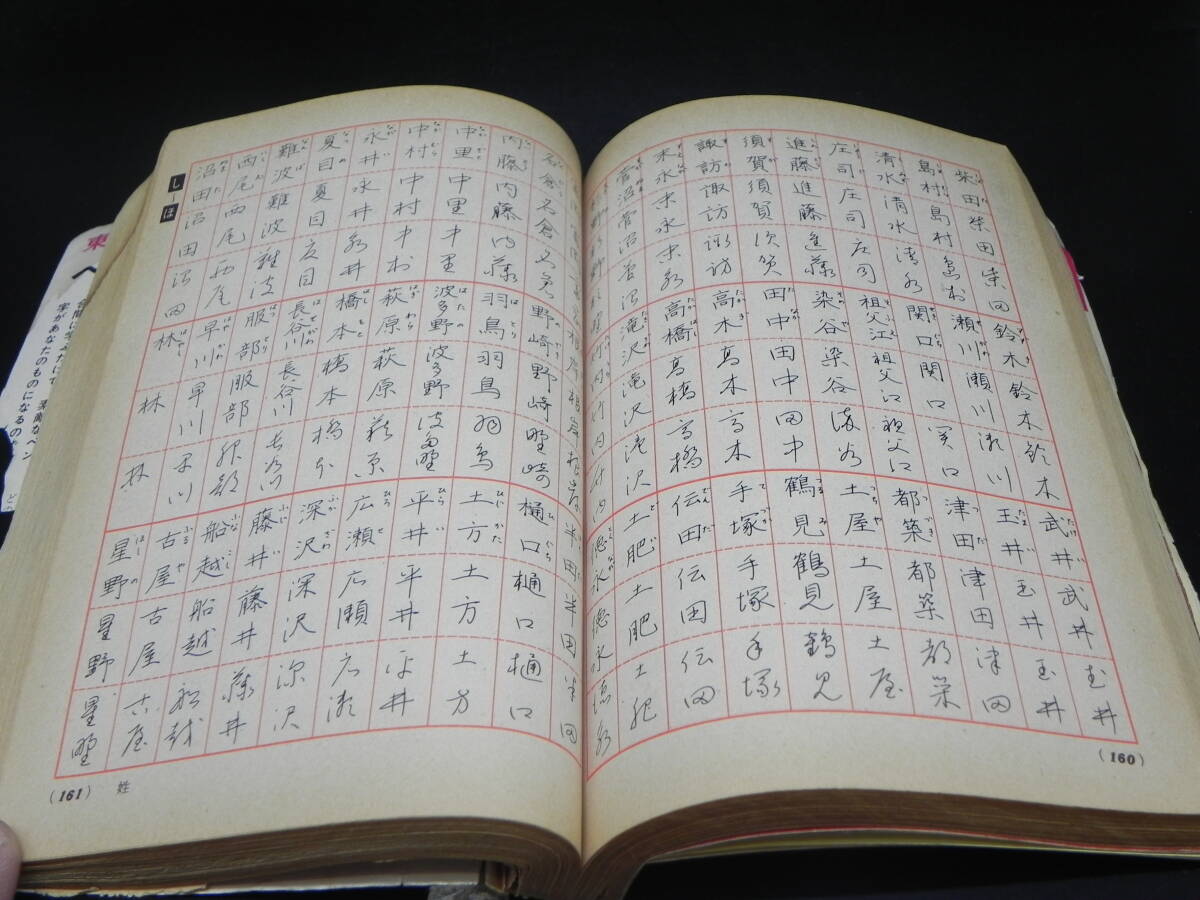 柴田柴田柴田
島村島村島村
清水清水清水
庄司庄司庄司
進藤進藤進藤
須賀須賀須賀
諏訪諏訪諏訪
末永末永末永
菅沼菅沼菅沼
鈴木鈴木鈴木
瀬川瀬川瀬川
関口関口関口
祖父江祖父江祖父江
染谷染谷染谷
田中田中田中
高木高木高木
高橋高橋高橋
滝沢滝沢滝沢
竹内竹内竹内
武井武井武井
玉井玉井玉井
津田津田津田
都築都築都築
土屋土屋土屋
鶴見鶴見鶴見
手塚手塚手塚
伝田伝田伝田
土肥土肥土肥
徳永徳永徳永
(160)
名倉名倉名倉
内藤内藤内藤
中里中里中里
中村中村中村
永井永井永井
夏目夏目夏目
難波難波難波
西尾西尾西尾
沼田沼田沼田
根岸根岸根岸
野崎野崎野崎
羽鳥羽鳥羽鳥
波多野波多野波多野
萩原萩原萩原
橋本橋本橋本
長谷川長谷川長谷川
服部服部服部
早川早川早川
林林林
半田半田半田
樋口樋口樋口
土方土方土方
平井平井平井
広瀬広瀬広瀬
深沢深沢深沢
藤井藤井藤井
船越船越船越
古屋古屋古屋
星野星野星野
し
ほ
(161) 姓
東
字があなたのものになるの